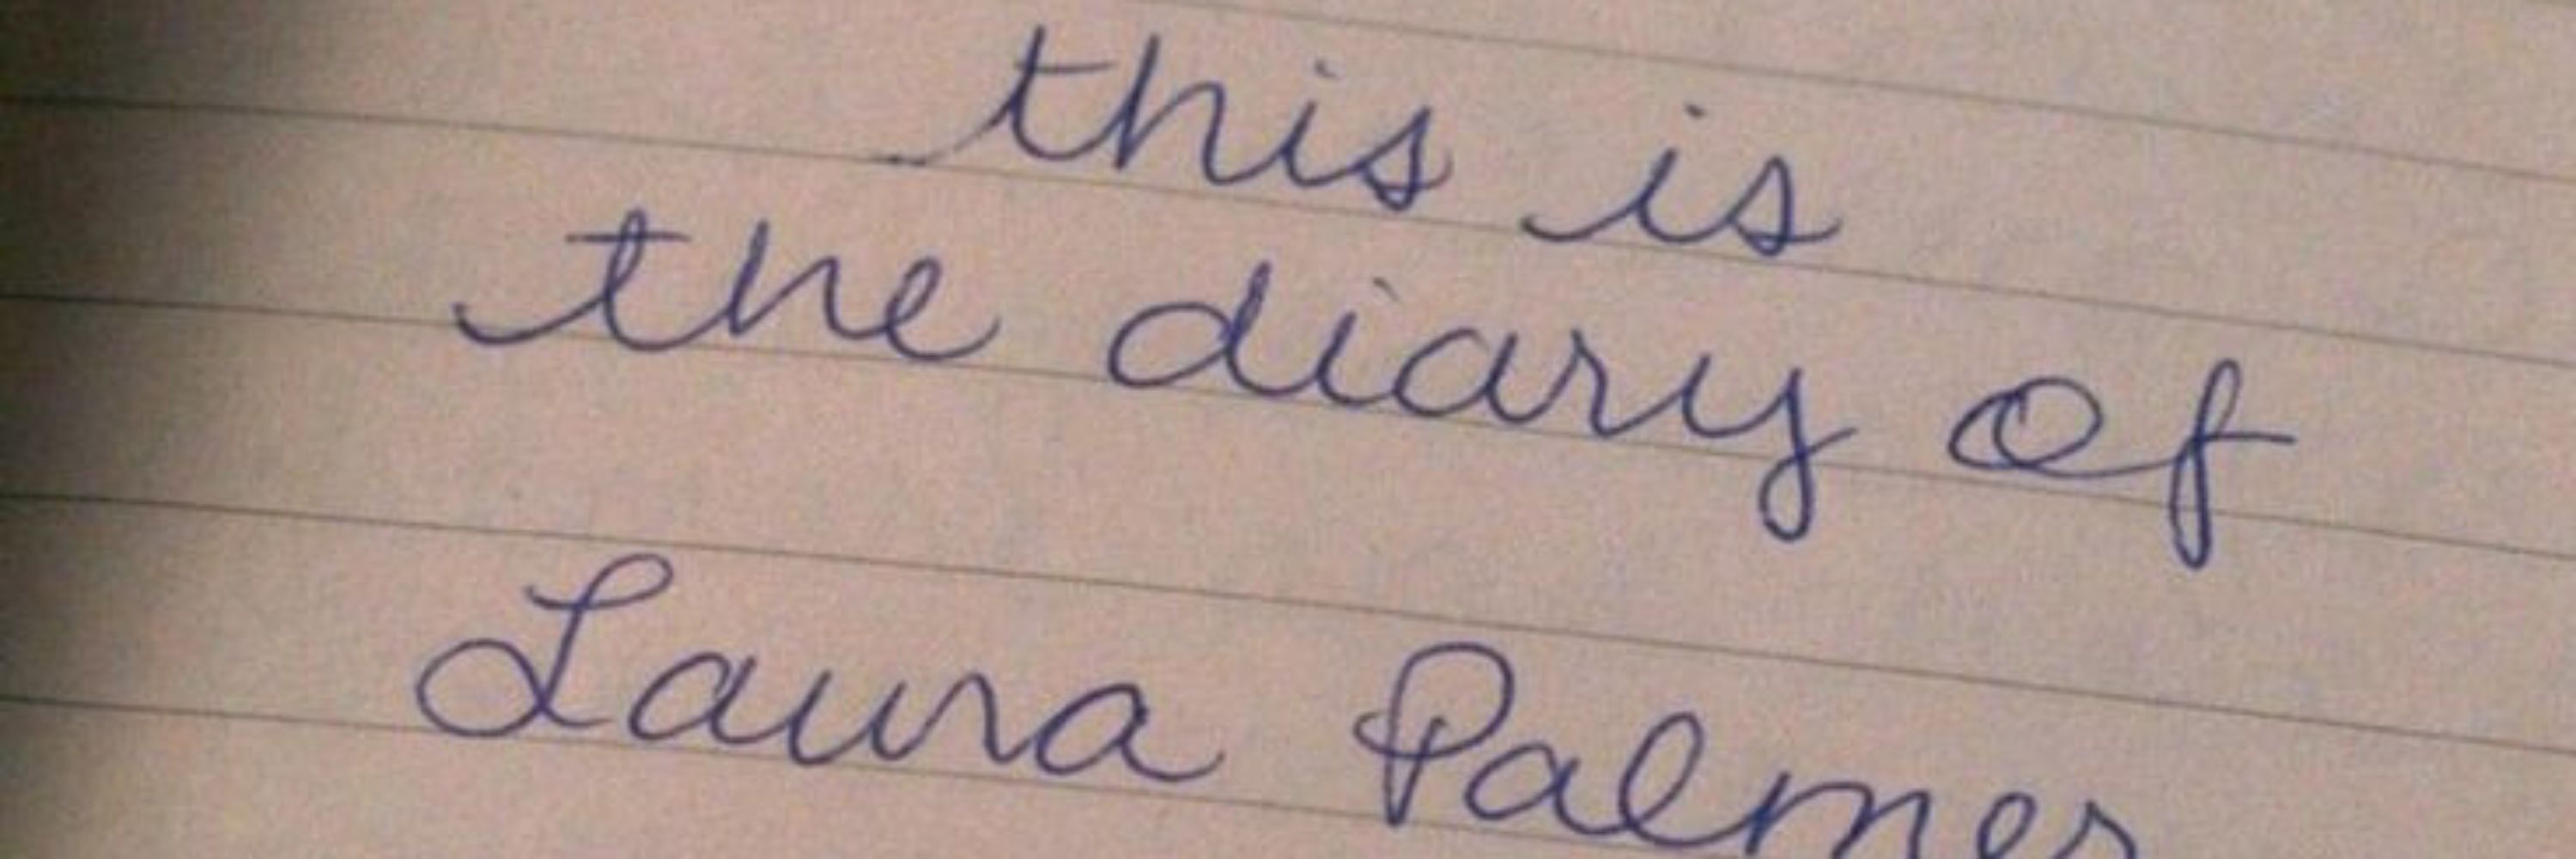 this is
the diary of
Laura Palmer